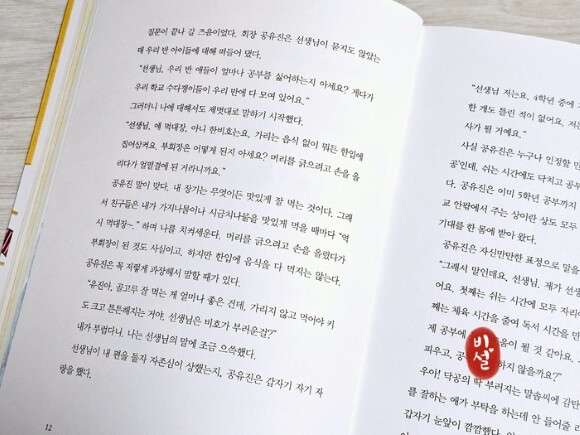 질문이 끝나 갈 즈음이었다. 회장 공유진은 선생님이 묻지도 않았는
데 우리 반 아이들에 대해 떠들어 댔다.
"선생님, 우리 반 애들이 얼마나 공부를 싫어하는지 아세요? 게다가
우리 학교 수다쟁이들이 우리 반에 다 모여 있어요."
그러더니 나에 대해서도 제멋대로 말하기 시작했다.
"선생님, 얘 먹대장, 아니 한비호는요, 가리는 음식 없이 뭐든 한입에
집어삼켜요. 부회장은 어떻게 된지 아세요? 머리를 긁으려고 손을 올
리다가 얼떨결에 된 거라니까요."
공유진 말이 맞다. 내 장기는 무엇이든 맛있게 잘 먹는 것이다. 그래
서 친구들은 내가 가지나물이나 시금치나물을 맛있게 먹을 때마다 "역
시 먹대장~." 하며 나를 치켜세운다. 머리를 긁으려고 손을 올렸다가
부회장이 된 것도 사실이고. 하지만 한입에 음식을 다 먹지는 않는다.
공유진은 꼭 저렇게 과장해서 말할 때가 있다.
"유진아, 골고루 잘 먹는 게 얼마나 좋은 건데. 가리지 않고 먹어야 키
도 크고 튼튼해지는 거야. 선생님은 비호가 부러운걸?"
내가 부럽다니. 나는 선생님의 말에 조금 으쓱했다.
선생님이 내 편을 들자 자존심이 상했는지, 공유진은 갑자기 자기 자
랑을 했다.
12
"선생님 저는요, 4학년 중에
한 개도 틀린 적이 없어요. 저
사가 될 거예요."
사실 공유진은 누구나 인정할 만
공'인데, 쉬는 시간에도 닥치고 공부
다. 공유진은 이미 5학년 공부까지
교 안팎에서 주는 상이란 상도 모두
기대를 한 몸에 받아 왔다.
공유진은 자신만만한 표정으로 말을
"그래서 말인데요, 선생님. 제가 선생
어요. 첫째는 쉬는 시간에 모두 자리
째는 체육 시간을 줄여 독서 시간을 만
제 공부에 움이 될 것 같아요.
피우고, 공 하지 않을까요?"
우아! 닥공의 딱 부러지는 말솜씨에 감탄
를 잘하는 애가 부탁을 하는데 안 들어줄 리
갑자기 눈앞이 깜깜했다. 이
비.설